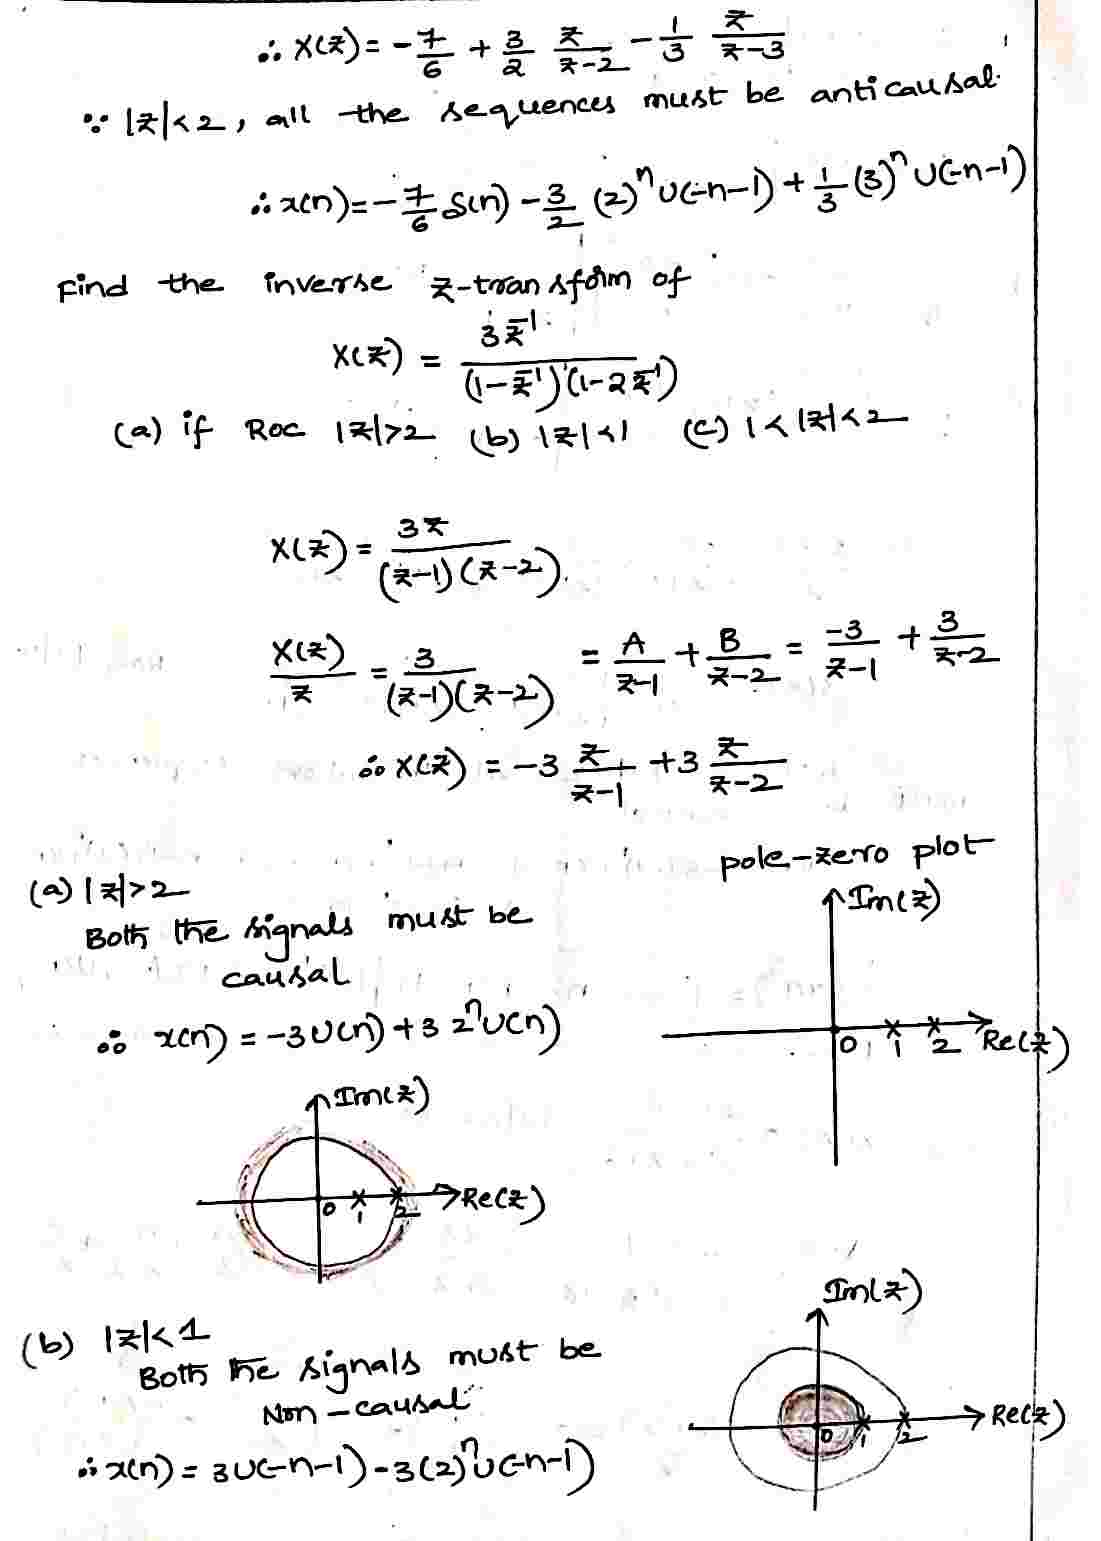 ∴ X(z) = -7/6 + 3/2 z/z-2 - 1/3 z/z-3
∵ |z|<2, all the sequences must be anticausal.
∴ x(n) = -7/6 δ(n) - 3/2 (2)^n U(-n-1) + 1/3 (3)^n U(-n-1)
Find the inverse z-transform of
X(z) = 3z^-1 / (1-z^-1)(1-2z^-1)
(a) if Roc |z|>2 (b) |z|<1 (c) 1<|z|<2
X(z) = 3z / (z-1)(z-2).
X(z)/z = 3/(z-1)(z-2) = A/z-1 + B/z-2 = -3/z-1 + 3/z-2
∴ X(z) = -3 z/z-1 + 3 z/z-2
pole-zero plot
Im(z)
0 1 2 Re(z)
(a) |z|>2
Both the signals must be
causal
∴ x(n) = -3U(n) + 3 2^n U(n)
Im(z)
0 1 2 Re(z)
(b) |z|<1
Both the signals must be
Non-causal
∴ x(n) = 3U(-n-1) - 3(2)^n U(-n-1)
Im(z)
0 1 2 Re(z)